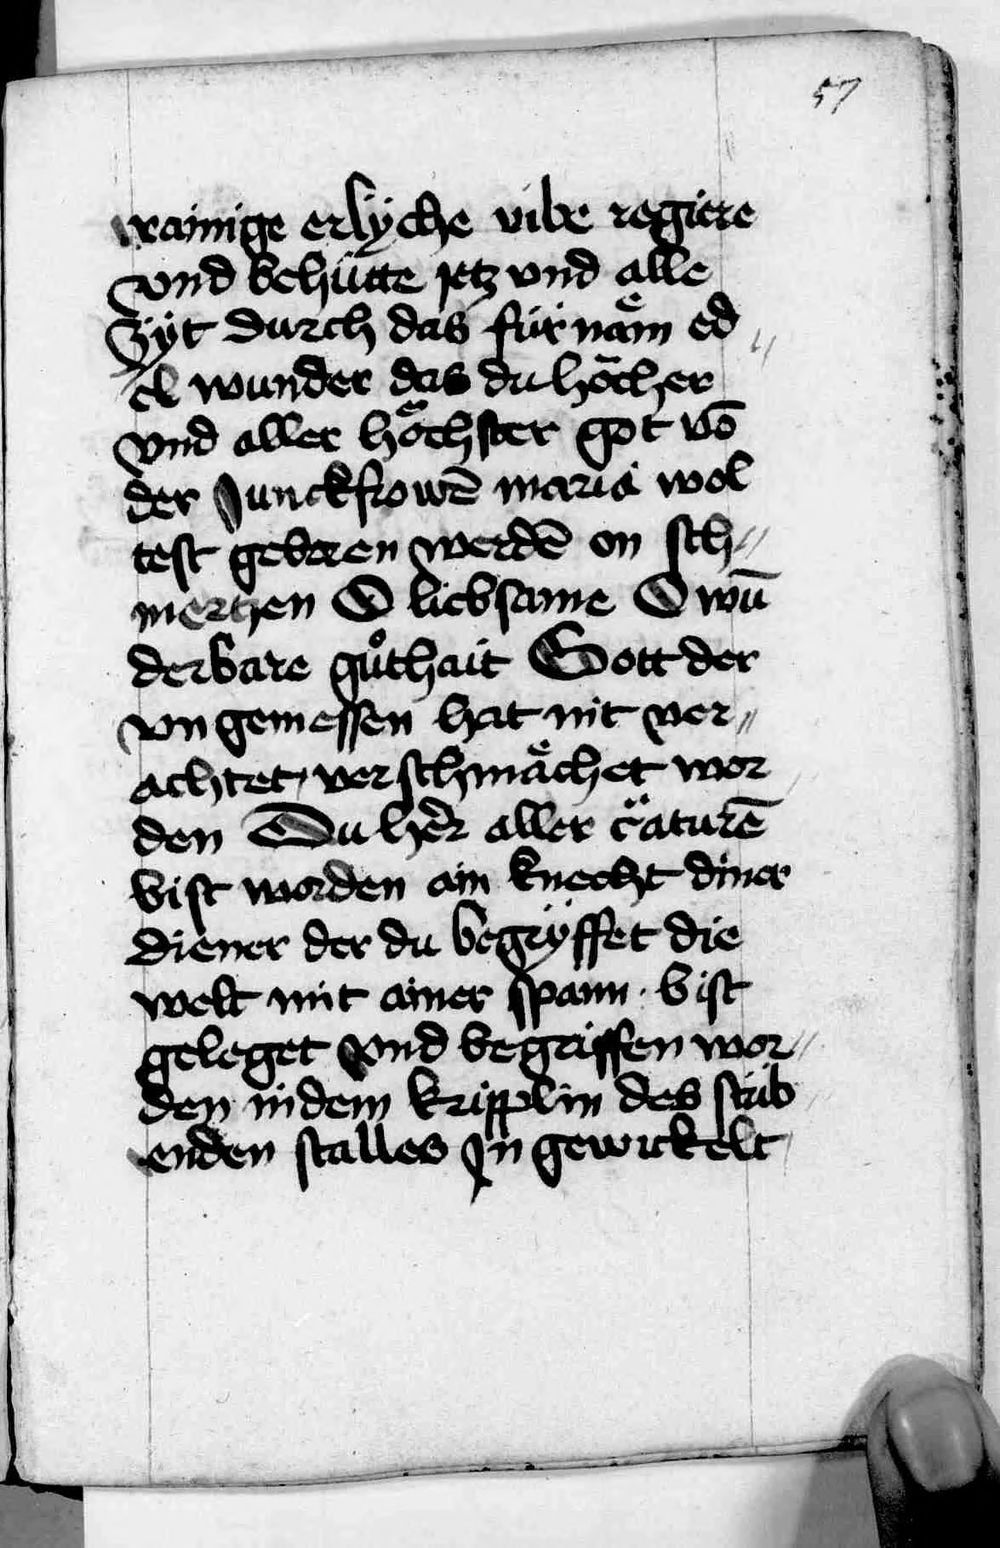 57
rainige erlyche vibe regiere
vnd behütte jetz vnd alle
Zÿt durch das fürnäm ed
el wunder das du höcher
vnd aller höchster got vō
der Junckfrowē maria wol
test geboren werdē on sch〃
mertzen O liebsame O wū
derbare gůthait Gott der
vngemessen hat nit ver〃
achtet, verschmächet wor
den Du her aller cäaturē
bist worden ain knecht diner
diener der du begryffet die
welt mit ainer spann · bist
geleget vnd begriffen wor〃
den in dem kripplin des stüb
enden stalles Jn gewickelt